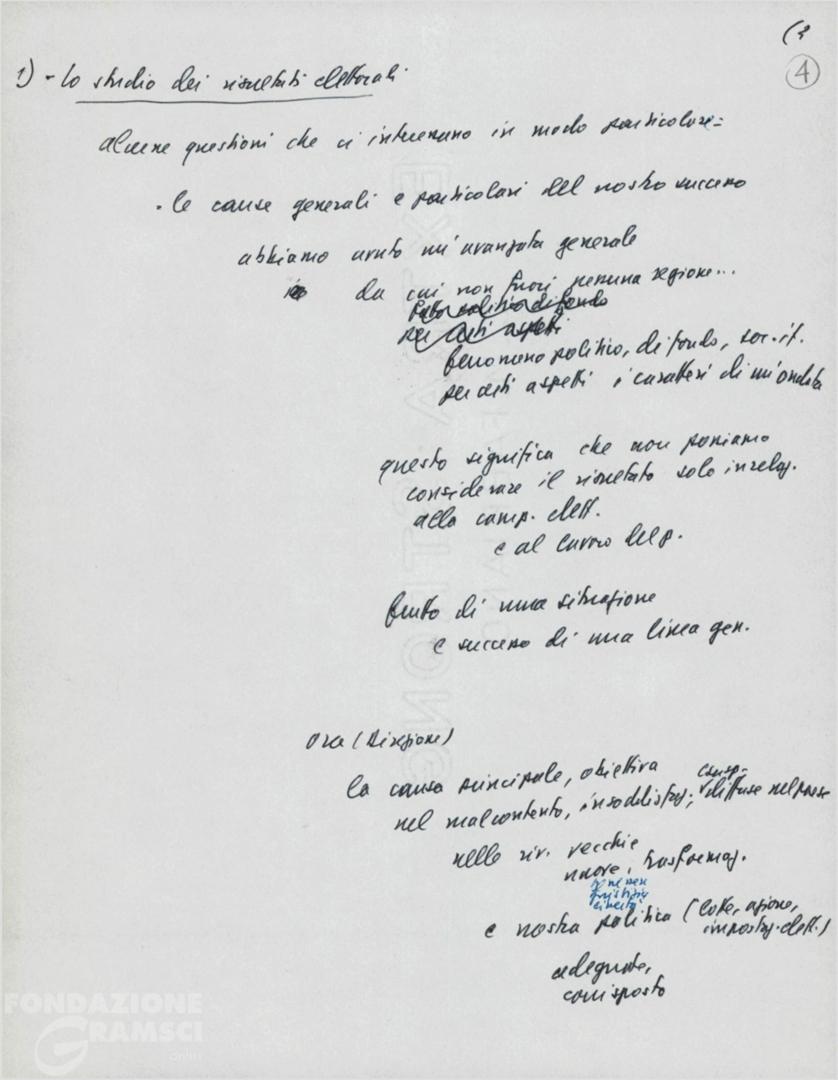 (3
4
1) - Lo studio dei risultati elettorali
alcune questioni che ci interessano in modo particolare=
- le cause generali e particolari del nostro successo
abbiamo avuto un'avanzata generale
da cui non fuori nessuna regione...
fatto politico di fondo
per certi aspetti
fenomeno politico, di fondo, soc. it.
per certi aspetti i caratteri di un'ondata
questo significa che non possiamo
considerare il risultato solo in relaz.
alla camp. elett.
e al lavoro del p.
frutto di una situazione
e successo di una linea gen.
Ora (Direzione)
la causa principale, obiettiva
nel malcontento, insodisfaz; diffuse nel paese
nelle riv. vecchie
nuove, trasformaz.
benessere
giustizia
libertà
e nostra politica (lotte, azione,
impostaz. elett.)
adeguate,
corrisposto
FONDAZIONE
GRAMSCI
onlus